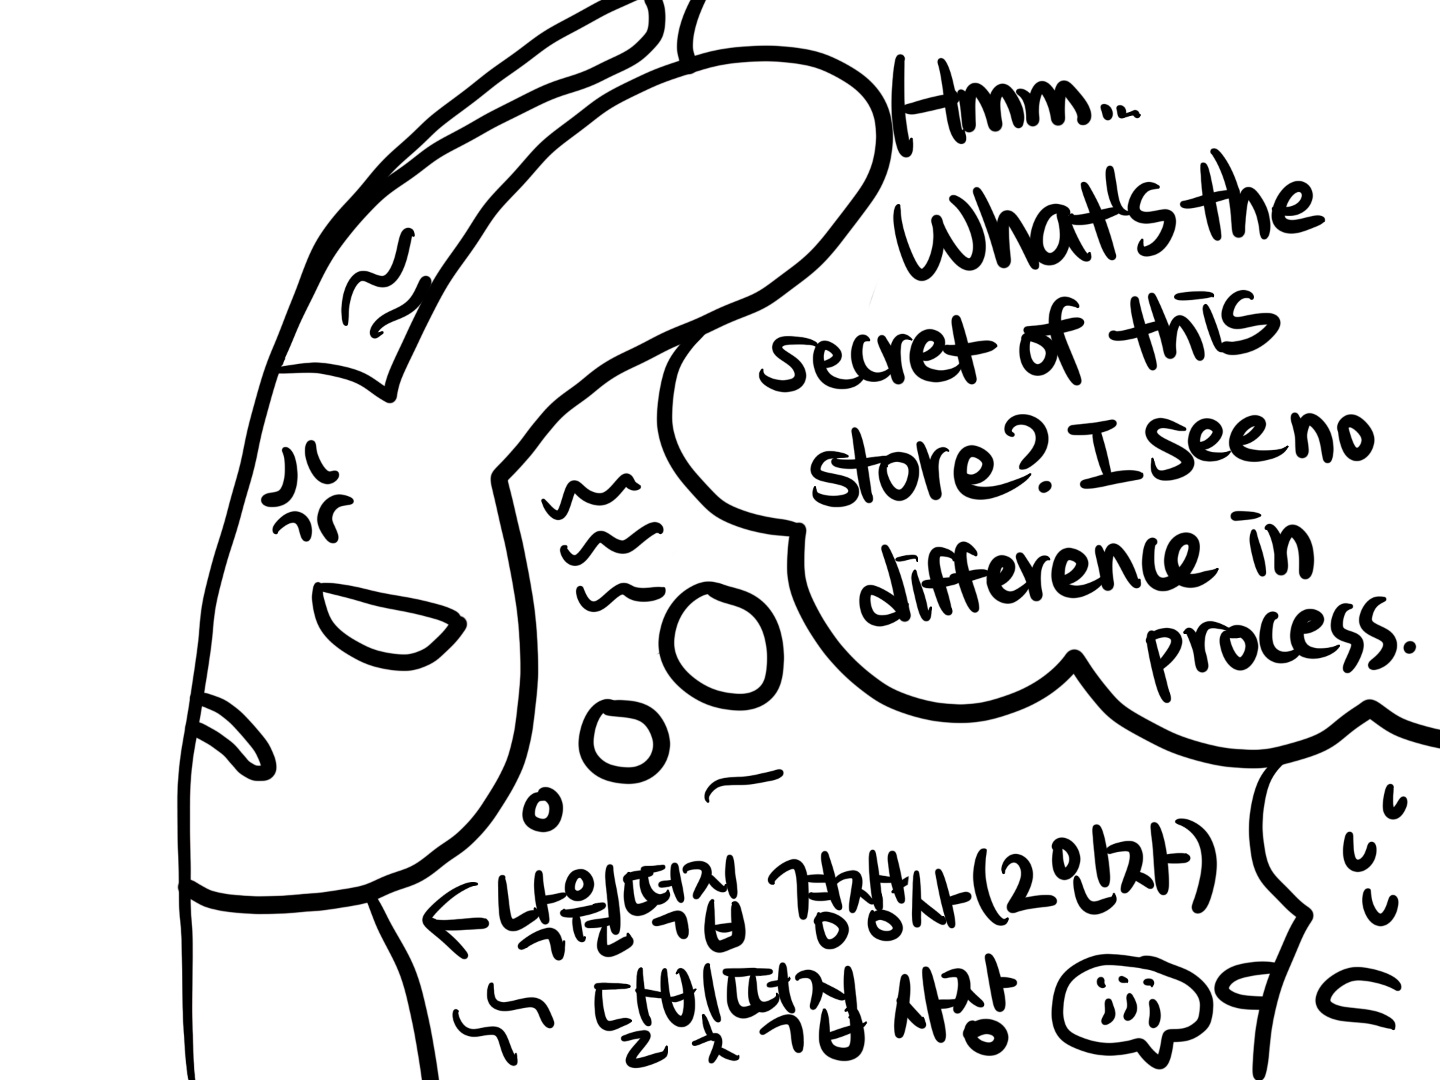 Hmm...
What's the
secret of this
store? I see no
difference in
process.
←낙원떡집 경쟁사(2인자)
달빛떡집 사장